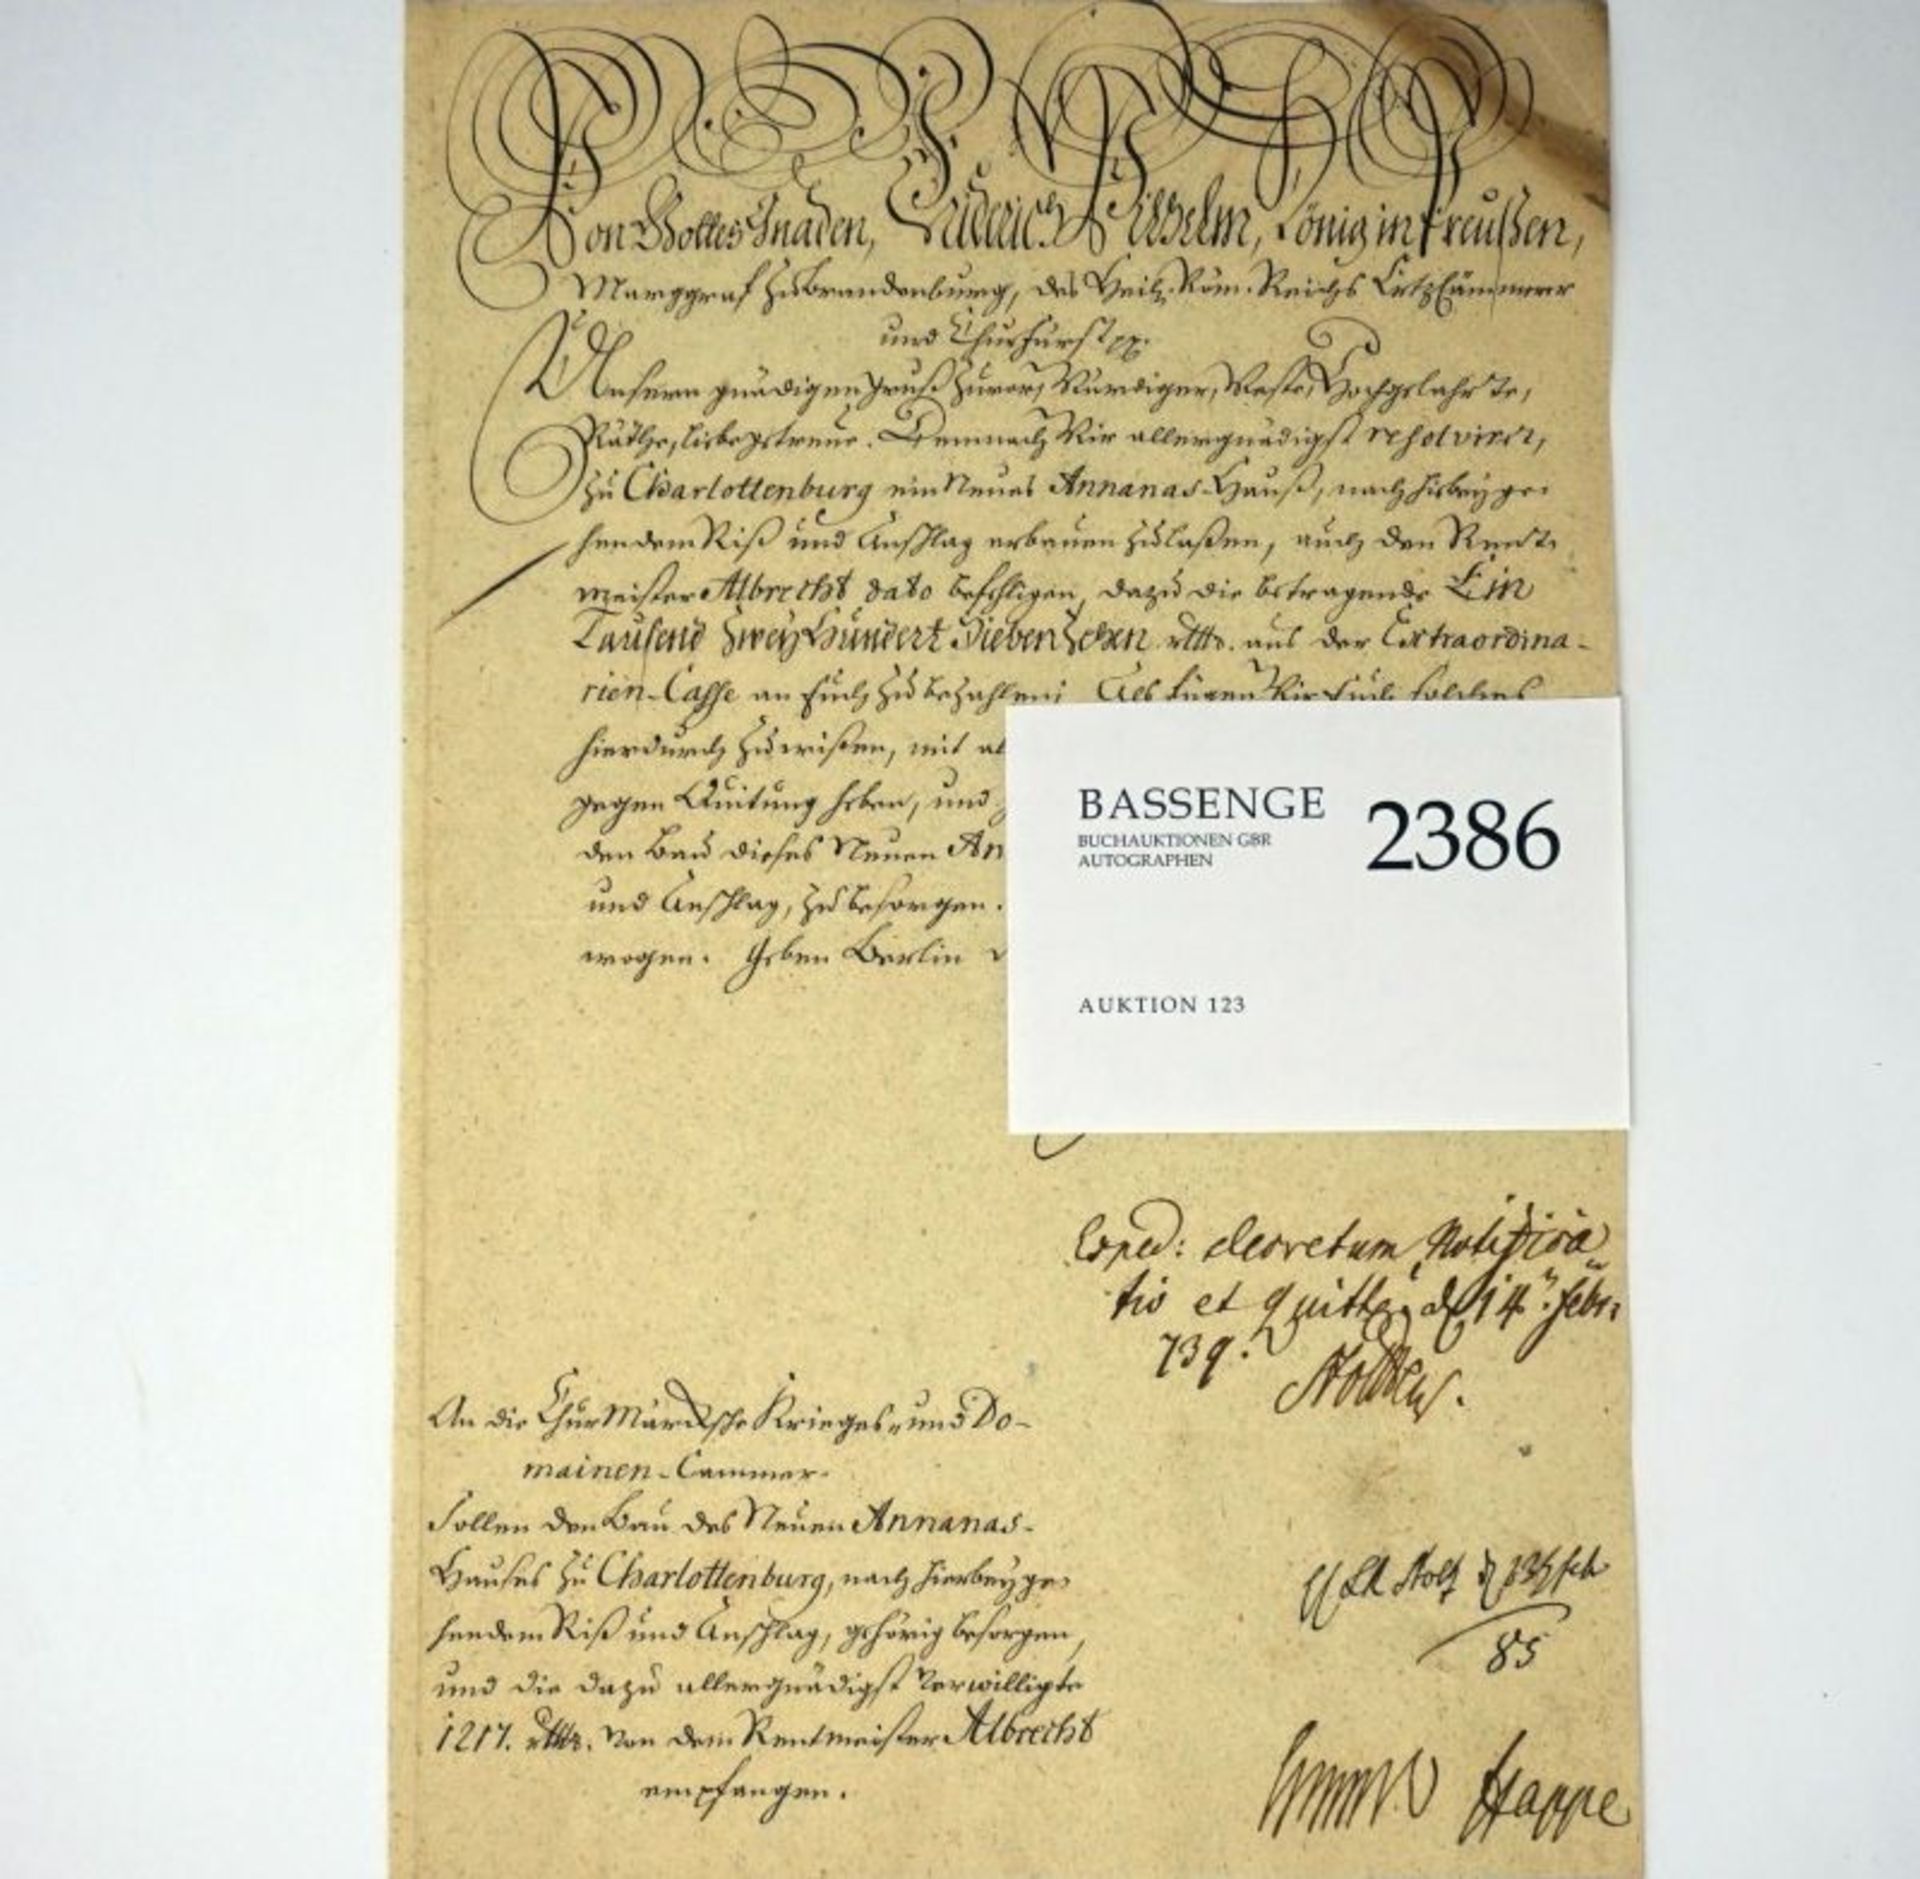 Von Gottes Gnaden, Friderich Wilhelm, König in Preußen,
Marggraf zu Brandenburg, des Heil. Röm. Reichs Ertz Cämmerer
und Churfürst pp.
Unsern gnädigen Gruß zuvor, Würdiger, Veste, Hochgelahrte,
Räthe, liebe getreue. Demnach Wir allergnädigst resolviret,
zu Charlottenburg ein Neues Annanas-Hauß, nach hirbeyge-
hendem Riß und Anschlag erbauen zu laßen, auch den Rent-
meister Albrecht dato befehligen, dazu die betragende Ein
Tausend Zwey Hundert Siebenzehen rthlr. aus der Extraordina-
rien-Casse an Euch zu bezahlen; Als fügen Wir Euch solches
hierdurch zu wißen, mit al
gegen Quitung heben, und
den Bau dieses Neuen An
und Anschlag, zu besorgen.
wogen. Geben Berlin d
BASSENGE
BUCHAUKTIONEN GBR
AUTOGRAPHEN
2386
AUKTION 123
Exped: decretum Notifica
tio et Quittg d 14t. febr.
739.
An die ChurMärckische Krieges- und Do-
mainen-Cammer.
Sollen den Bau des Neuen Annanas-
Hauses zu Charlottenburg, nach hierbeyge-
hendem Riß und Anschlag, gehörig besorgen,
und die dazu allergnädigst verwilligte
1217. rthlr. von dem Rentmeister Albrecht
empfangen.
85
Happe